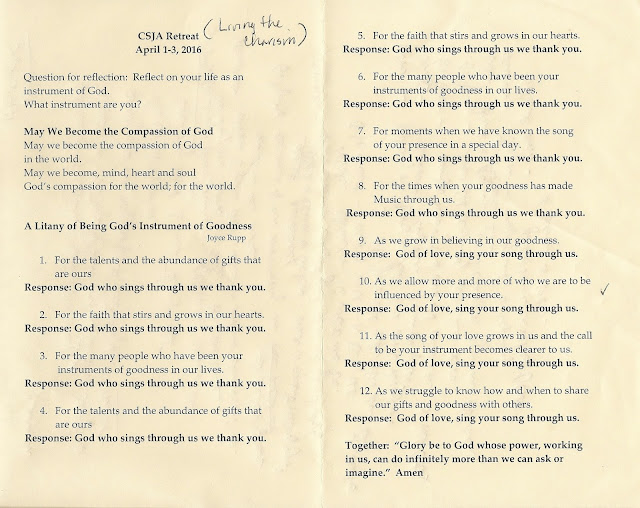 CSJA Retreat (Living the
charism)
April 1-3, 2016
Question for reflection: Reflect on your life as an
instrument of God.
What instrument are you?
May We Become the Compassion of God
May we become the compassion of God
in the world.
May we become, mind, heart and soul
God's compassion for the world; for the world.
A Litany of Being God's Instrument of Goodness
Joyce Rupp
1. For the talents and the abundance of gifts that
are ours
Response: God who sings through us we thank you.
2. For the faith that stirs and grows in our hearts.
Response: God who sings through us we thank you.
3. For the many people who have been your
instruments of goodness in our lives.
Response: God who sings through us we thank you.
4. For the talents and the abundance of gifts that
are ours
Response: God who sings through us we thank you.
5. For the faith that stirs and grows in our hearts.
Response: God who sings through us we thank you.
6. For the many people who have been your
instruments of goodness in our lives.
Response: God who sings through us we thank you.
7. For moments when we have known the song
of your presence in a special day.
Response: God who sings through us we thank you.
8. For the times when your goodness has made
Music through us.
Response: God who sings through us we thank you.
9. As we grow in believing in our goodness.
Response: God of love, sing your song through us.
10. As we allow more and more of who we are to be
influenced by your presence. ✓
Response: God of love, sing your song through us.
11. As the song of your love grows in us and the call
to be your instrument becomes clearer to us.
Response: God of love, sing your song through us.
12. As we struggle to know how and when to share
our gifts and goodness with others.
Response: God of love, sing your song through us.
Together: "Glory be to God whose power, working
in us, can do infinitely more than we can ask or
imagine." Amen